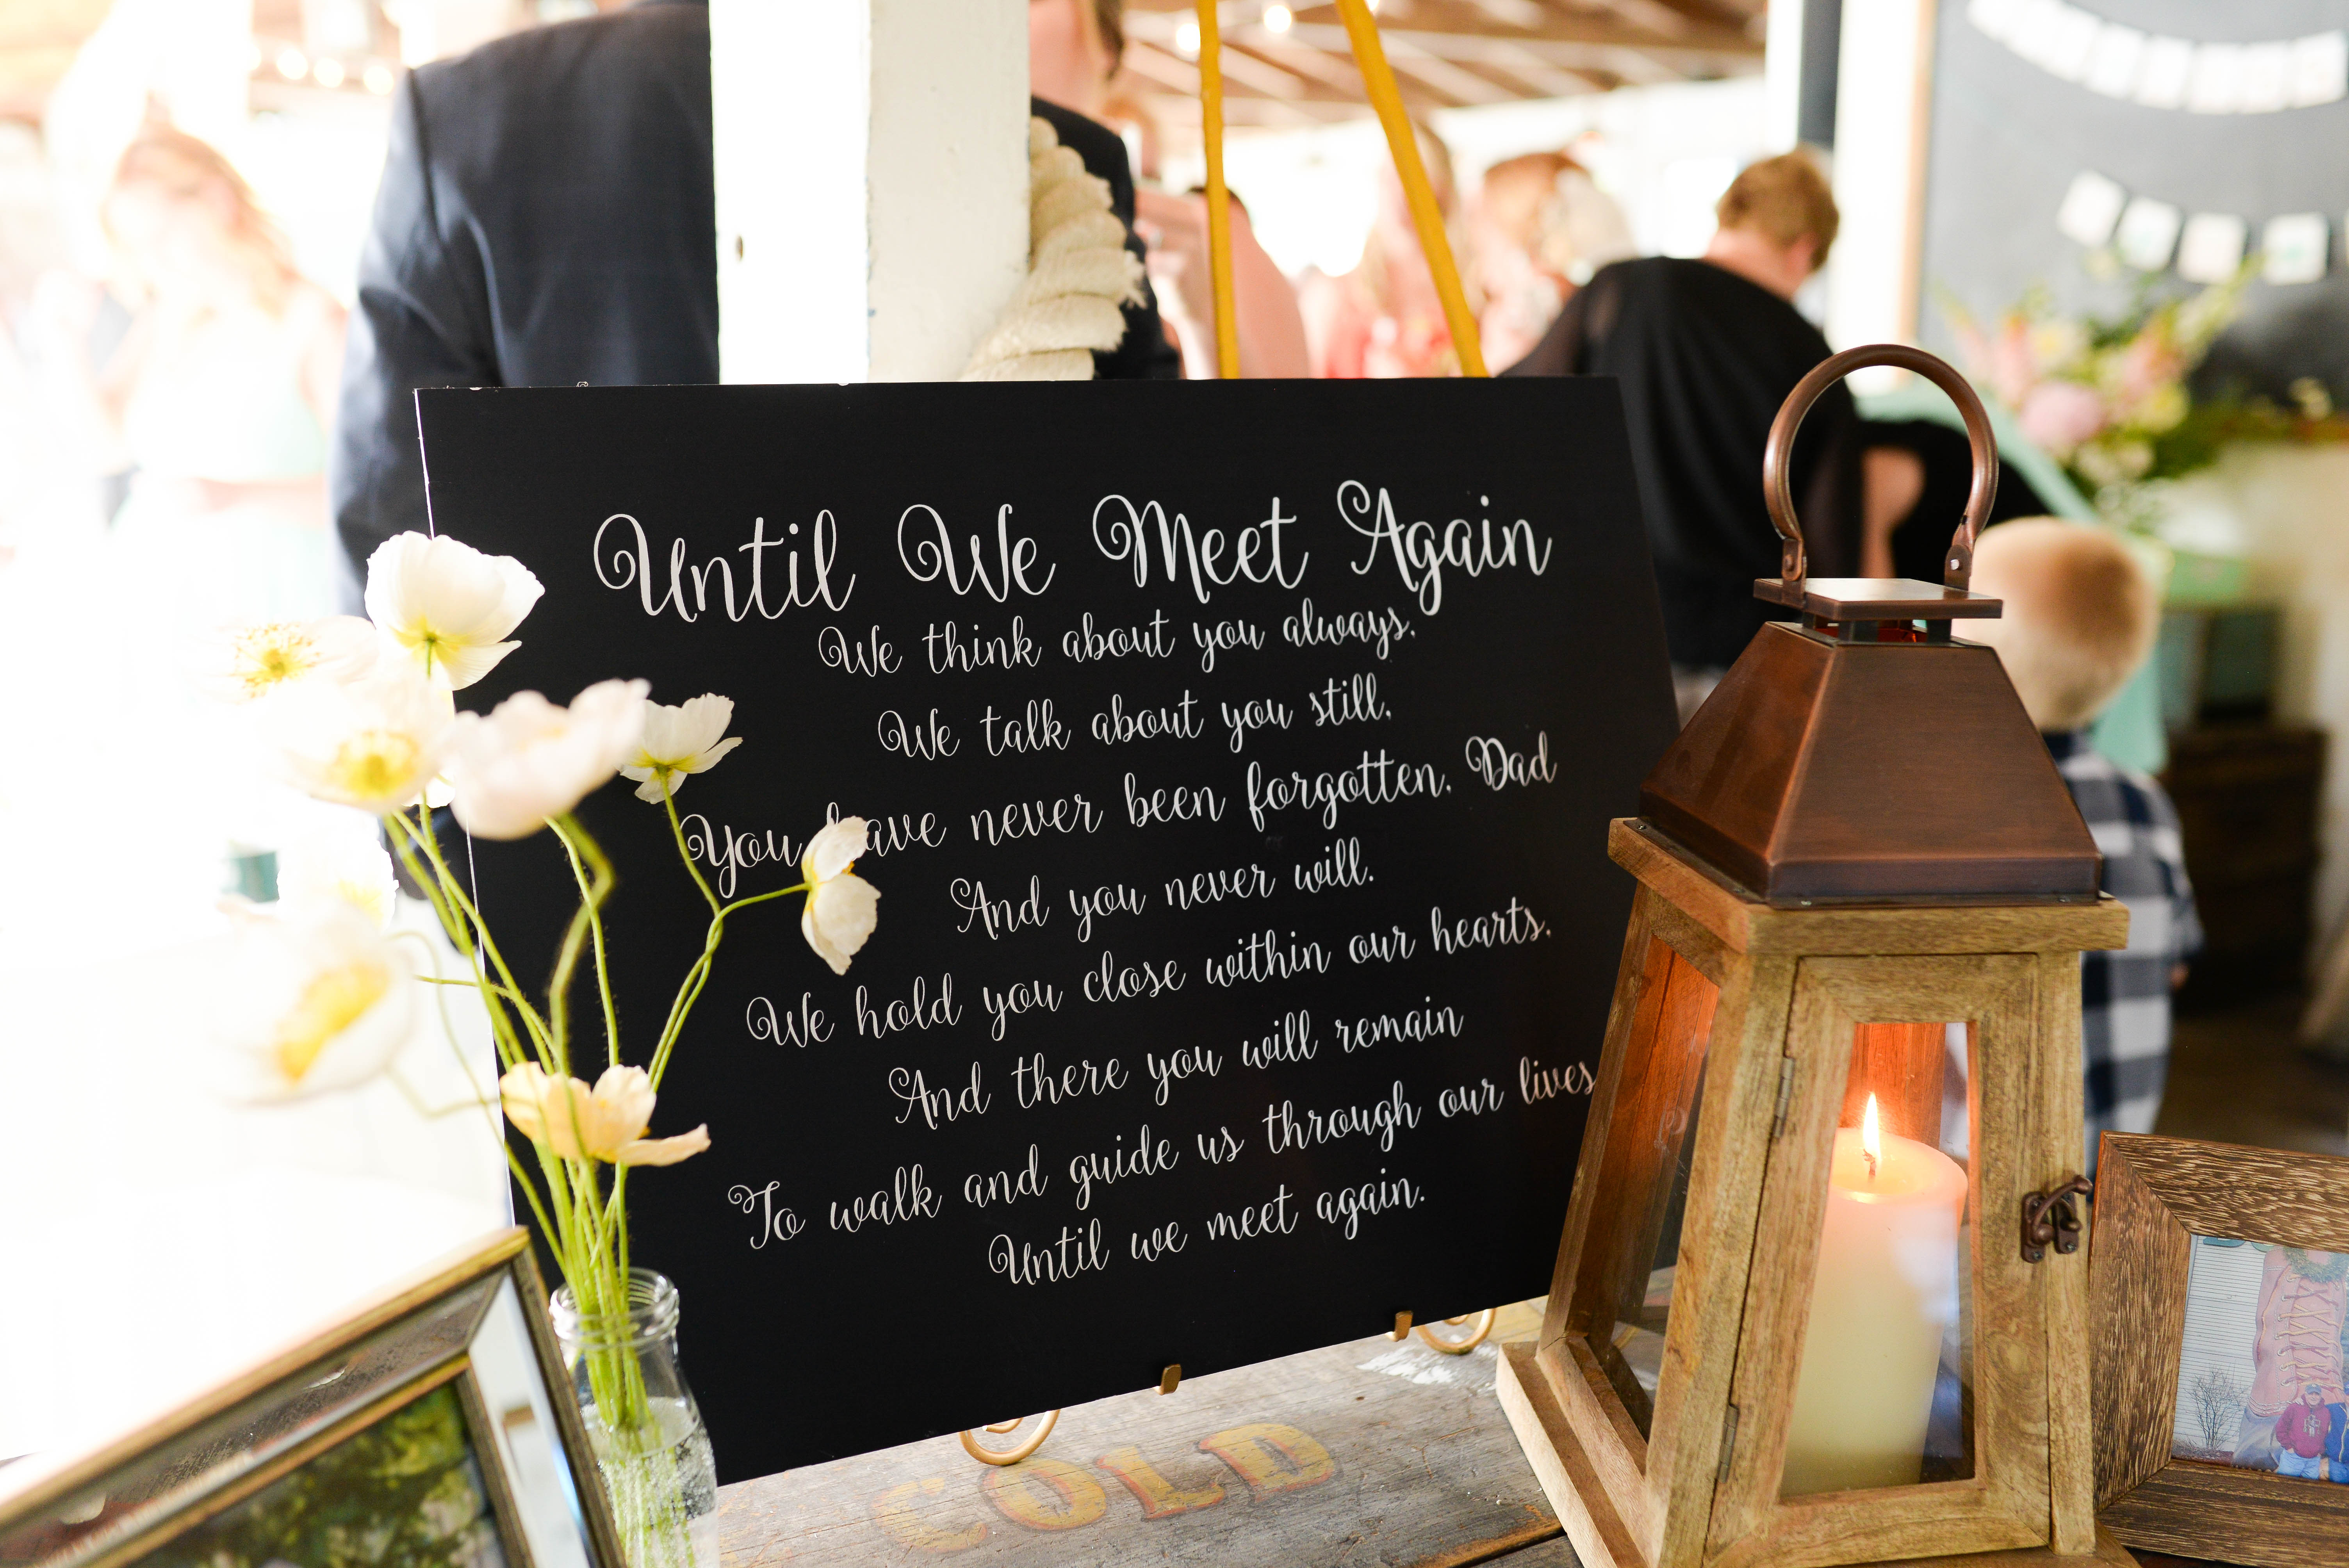 Until We Meet Again
We think about you always,
We talk about you still,
You have never been forgotten, Dad
And you never will.
We hold you close within our hearts,
And there you will remain
To walk and guide us through our lives
Until we meet again.
COLD